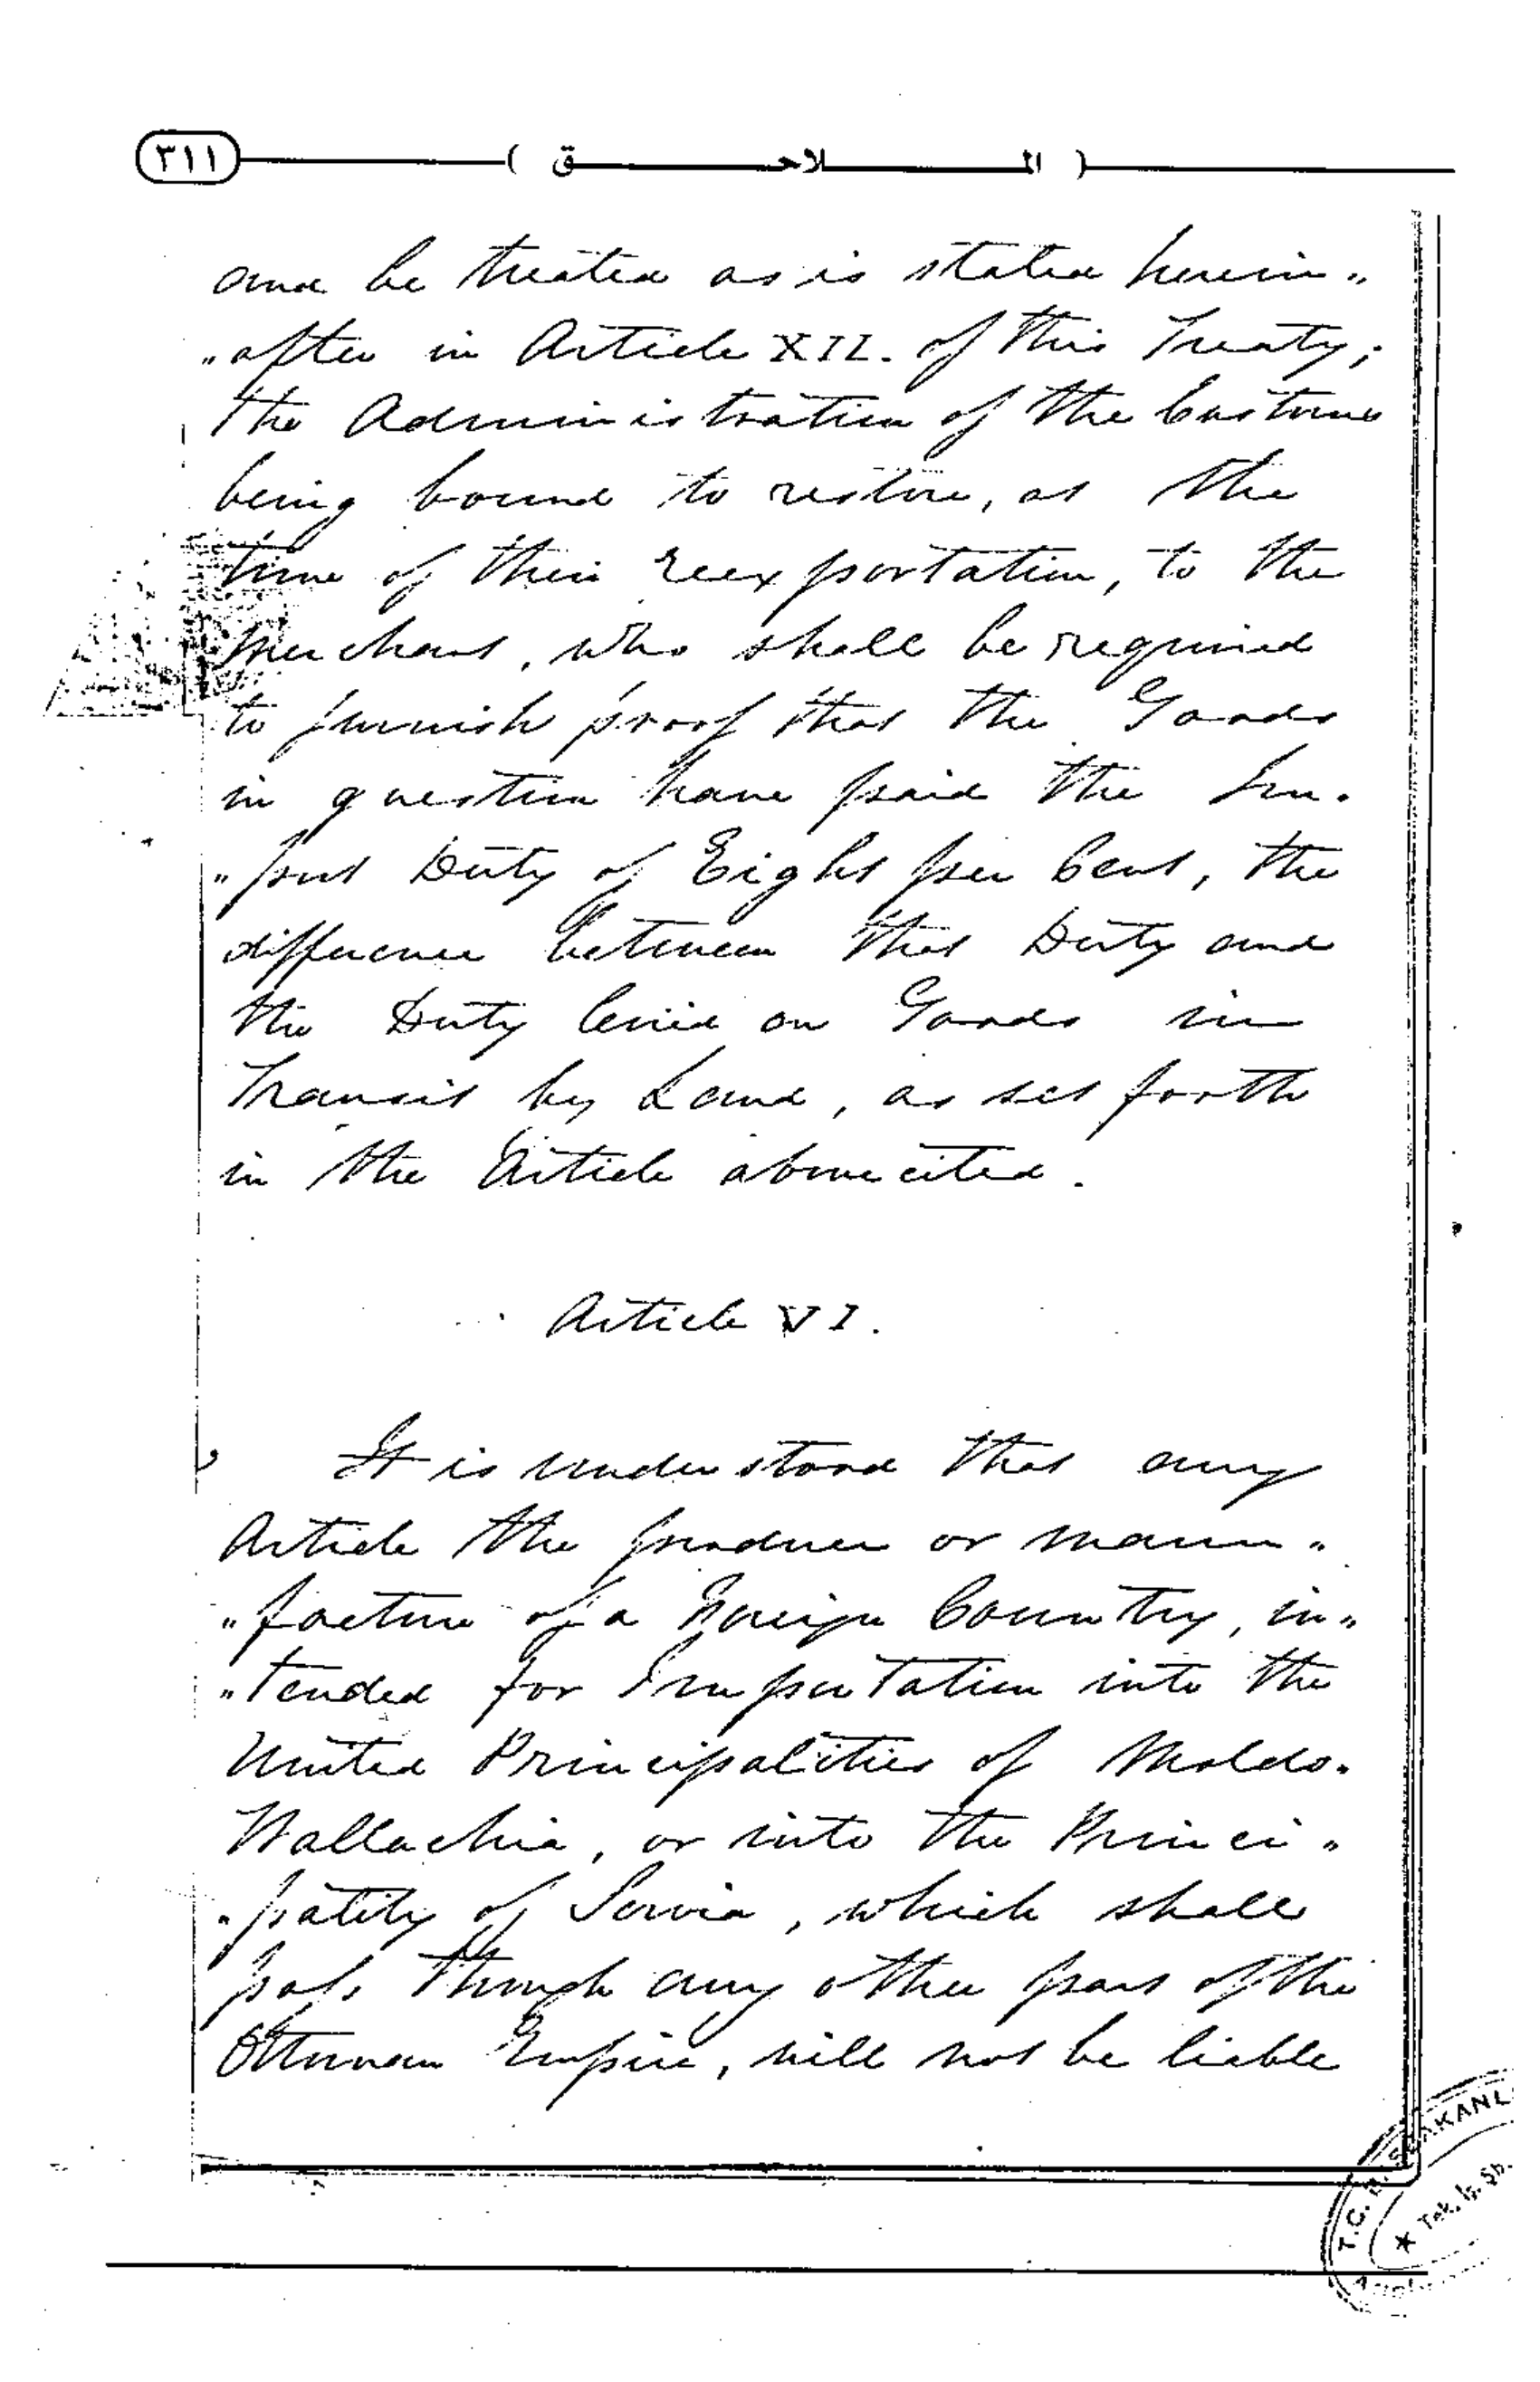 ٣١١
( الملاحق )
and be treated as is stated herein„
„after in Article XII. of this Treaty;
the Administration of the Customs
being bound to restore, at the
time of their reexportation, to the
Merchant, who shall be required
to furnish proof that the Goods
in question have paid the Im„
„port Duty of Eight per Cent, the
difference between that Duty and
the Duty levied on Goods in
Transit by Land, as set forth
in the Article above cited.
Article VI.
It is understood that any
Article the produce or manu„
„facture of a Foreign Country, in„
„tended for Importation into the
United Principalities of Moldo„
Wallachia, or into the Princi„
„pality of Servia, which shall
pass through any other part of the
Ottoman Empire, will not be liable
T.C.
AKANL
★ Tek. İş. Şb.